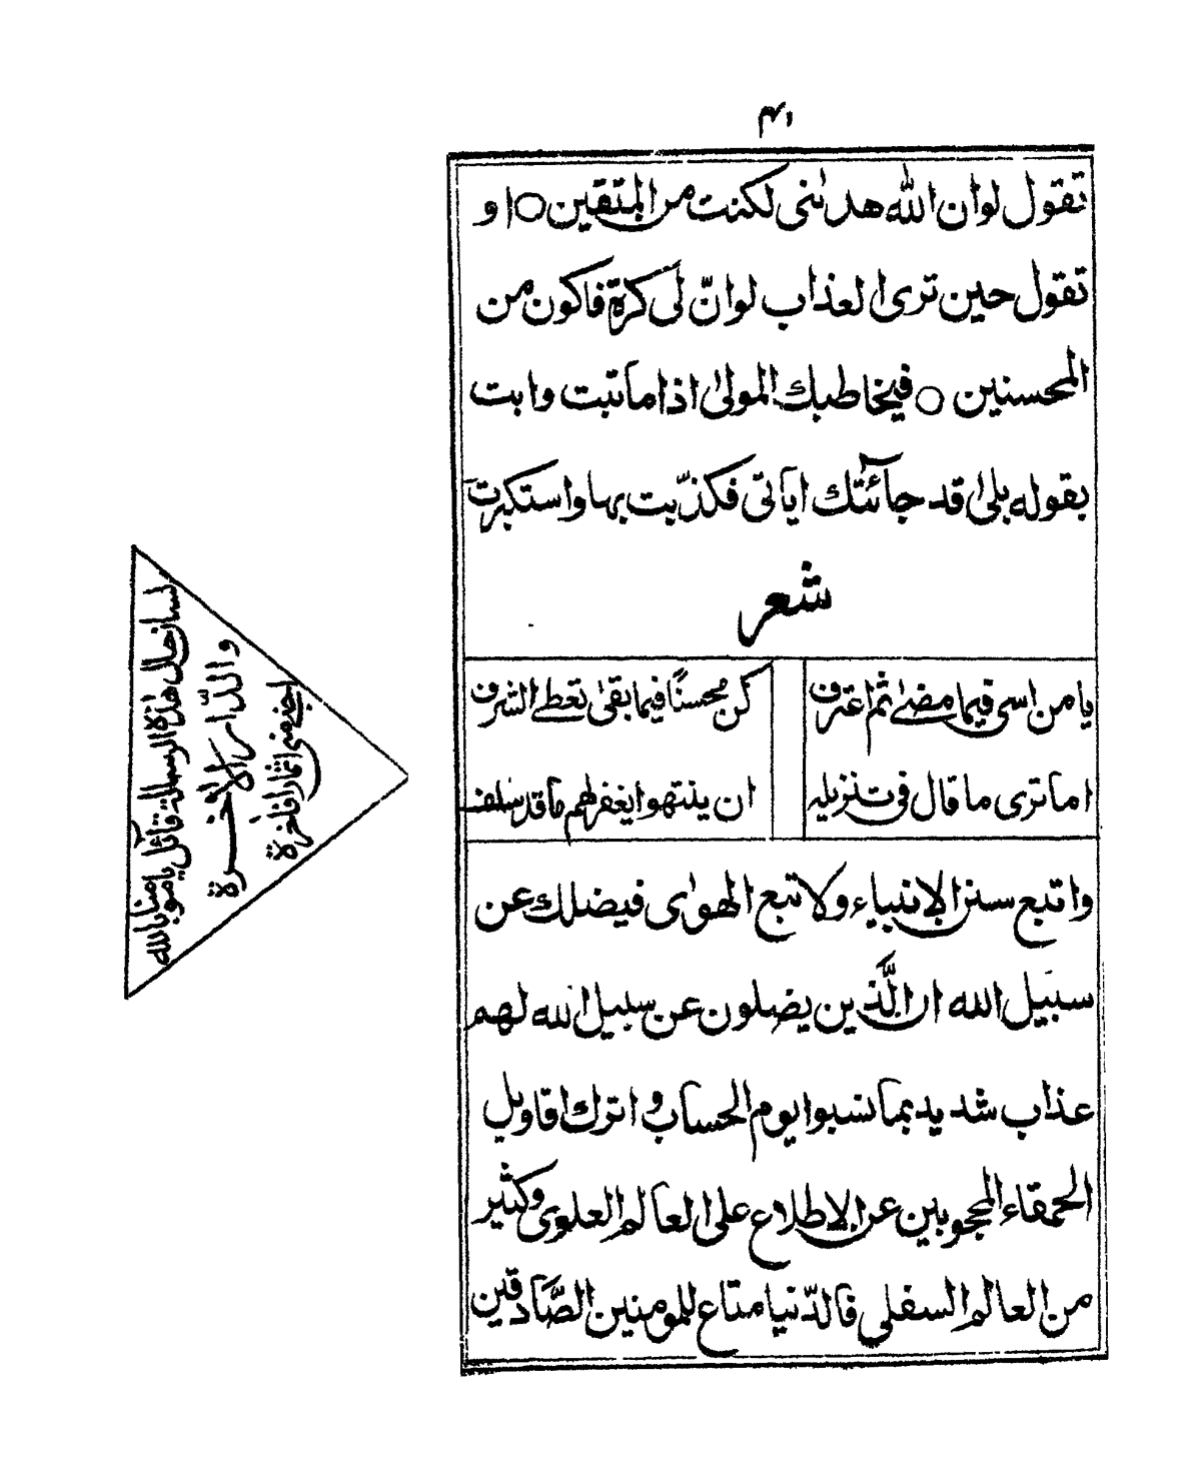 ۴۱
تقول لوان الله هدٰىنی لکنت من المتقین ○ او
تقول حین تری العذاب لوانّ لی کرة فاکون من
المحسنین ○ فیخاطبك المولیٰ اذا ما تبت وابت
بقوله بلیٰ قد جآئتك ایاتی فکذّبت بها واستکبرت
شعر
یا من اسی فیما مضیٰ ثم اعترف
کن محسنًا فیما بقیٰ تعطے الشرف
اما تری ما قال فی تنزیله
ان ینتهوا یغفر لهم ما قد سلف
واتبع سنن الانبیاء ولا تتبع الهوٰی فیضلك عن
سبیل الله ان الّذین یضلون عن سبیل الله لهم
عذاب شدید بما نسوا یوم الحساب و اترك اقاویل
الحمقاء المحجوبین عن الاطلاع علی العالم العلوی وکثیر
من العالم السفلی فالدّنیا متاع للمومنین الصّادقین
لسان حال هٰذه الرسالة قائل یا مومنا بالله
والدّار الاٰخرة
اجنے منی اثمارا فاخرة